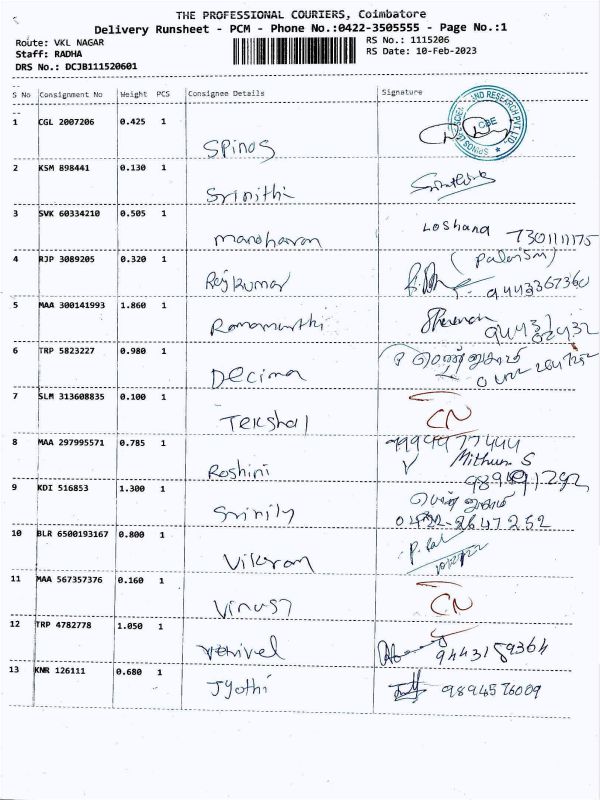 THE PROFESSIONAL COURIERS, Coimbatore
Delivery Runsheet - PCM - Phone No.:0422-3505555 - Page No.:1
Route: VKL NAGAR RS No.: 1115206
Staff: RADHA RS Date: 10-Feb-2023
DRS No.: DCJB111520601
S No Consignment No Weight PCS Consignee Details Signature
1 CGL 2007206 0.425 1 Spinos
CBE
2 KSM 898441 0.130 1 Srinithi
3 SVK 60334210 0.505 1 manoharan Loshana 7301111175
4 RJP 3089205 0.320 1 Rajkumar 9443367360
5 MAA 300141993 1.860 1 Ramamurthi
6 TRP 5823227 0.980 1 Decima
7 SLM 313608835 0.100 1 Tekshal CN
8 MAA 297995571 0.785 1 Roshini Mithun S
9 KDI 516853 1.300 1 Srinily 0422-2647252
10 BLR 6500193167 0.800 1 Vikram
11 MAA 567357376 0.160 1 CN
12 TRP 4782778 1.050 1 9443189364
13 KNR 126111 0.680 1 Jyothi 9894576009